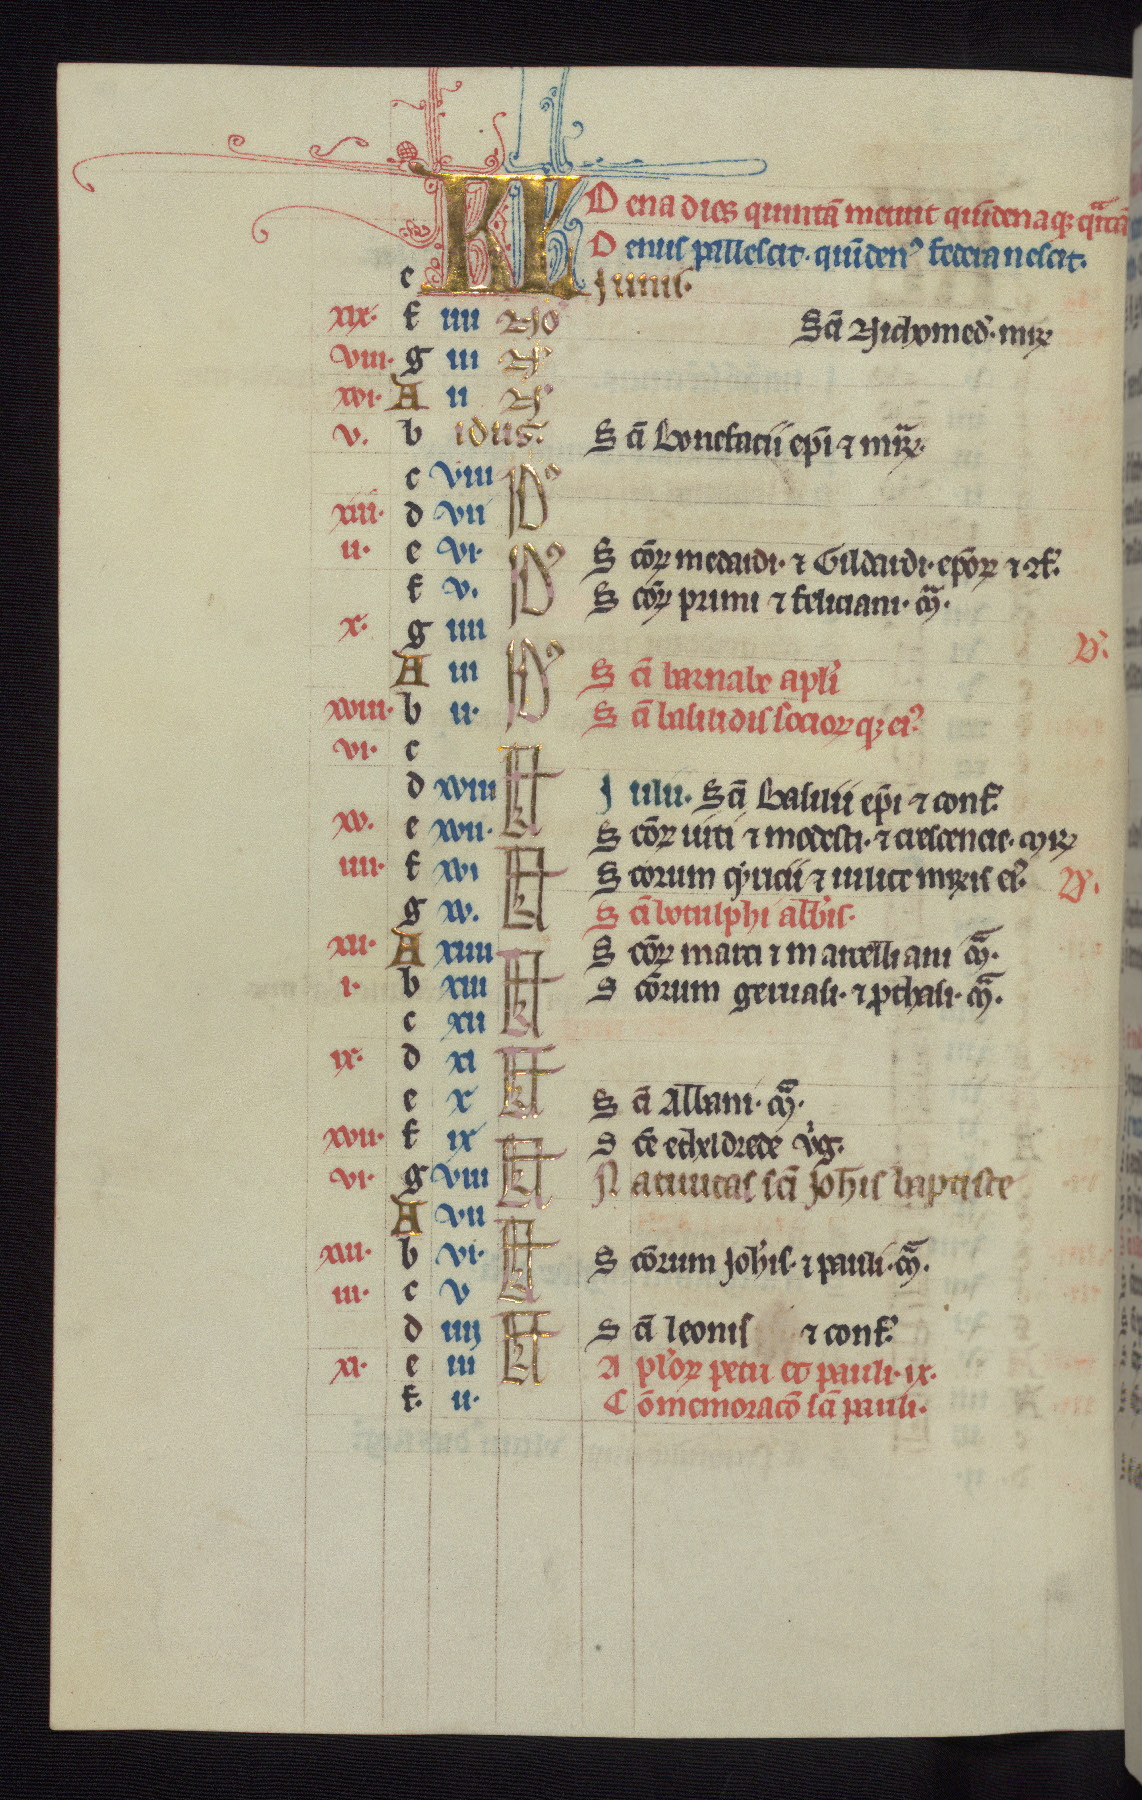 KL Dena dies quintā metuit quīdenaqȝ q̄rtā
Denus pallescit. quīdenꝰ federa nescit.
e Junius.
xix. f iiii No Scī Nichomed'. mrꝝ
viii. g iii Nꝰ
xvi. A ii Nꝰ
v. b idus. Scī Bonefacii ep̄i ⁊ m̄rꝝ.
c viii Idꝰ
xiii. d vii
ii. e vi. Idꝰ Scōrꝝ medardi. ⁊ Gildardi. ep̄orꝝ ⁊ ɔf.
f v. Scōrꝝ primi ⁊ feliciani. m̄.
x. g iiii
A iii Idꝰ Scī barnabe apl'i
xviii. b ii. Scī basilidis sociorꝝqȝ eiꝰ
vi. c
d xviii kl Julii. Scī Basilii ep̄i ⁊ conf.
xv. e xvii. Scōrꝝ uiti ⁊ modesti. ⁊ crescencie. mrꝝ
iiii. f xvi kl Scorum cyricii ⁊ iulitte mrꝝis eiꝰ.
g xv. Scī botulphi abb'is.
xii. A xiiii kl Scōrꝝ marci ⁊ marcelliani m̄.
i. b xiii Scōrum geruasi. ⁊ ꝓthasi. m̄.
c xii
ix. d xi kl
e x Scī Albani. m̄.
xvii. f ix kl Scē etheldrede v'g.
vi. g viii Natiuitas scī Joh'is baptiste
A vii kl
xiii. b vi. Scōrum Joh'is. ⁊ pauli. m̄.
iii. c v
d iiij kl Scī leonis ⁊ conf.
xi. e iii Apl'orꝝ petri et pauli. ix.
f. ii. Cōmemoracō scī pauli.